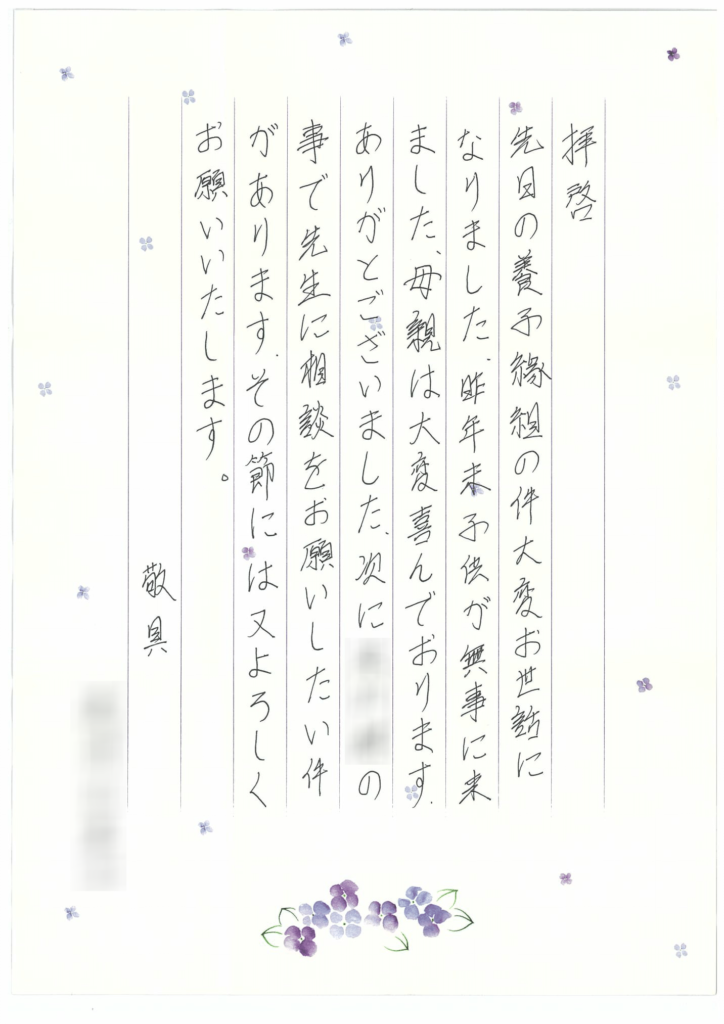 拝啓
先日の養子縁組の件大変お世話に
なりました、昨年末子供が無事に来
ました、母親は大変喜んでおります、
ありがとございました、次に
の
事で先生に相談をお願いしたい件
があります、その節には又よろしく
お願いいたします。
敬具